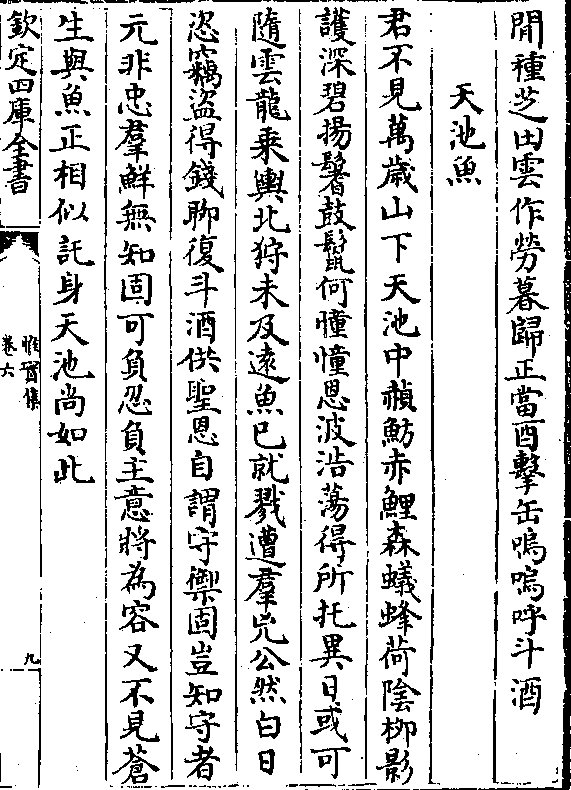 閒種芝田雲作勞暮歸正當酉擊缶嗚嗚呼斗酒
天池魚
君不見萬歲山下天池中赬魴赤鯉森蟻蜂荷陰柳影
護深碧揚鬐鼓鬣何憧憧恩波浩蕩得所托異日或可
隨雲龍乘輿北狩未及遠魚已就戮遭羣兇公然白日
恣竊盜得錢聊復斗酒供聖恩自謂守禦固豈知守者
元非忠羣鮮無知固可負忍負主意將為容又不見蒼
生與魚正相似託身天池尚如此
欽定四庫全書
惟實集
卷六
九